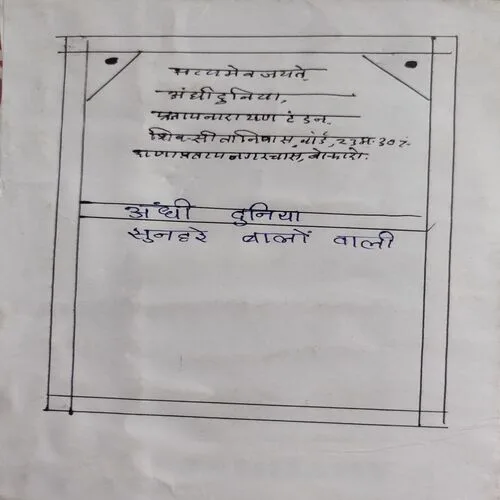 सत्यमेव जयते.
अंधी दुनिया,
प्रतापनारायण टंडन.
शिव-सीता निवास, वार्ड, 23 म. 307.
राणाप्रताप नगर चास, बोकारो.
अंधी दुनिया
सुनहरे बालों वाली